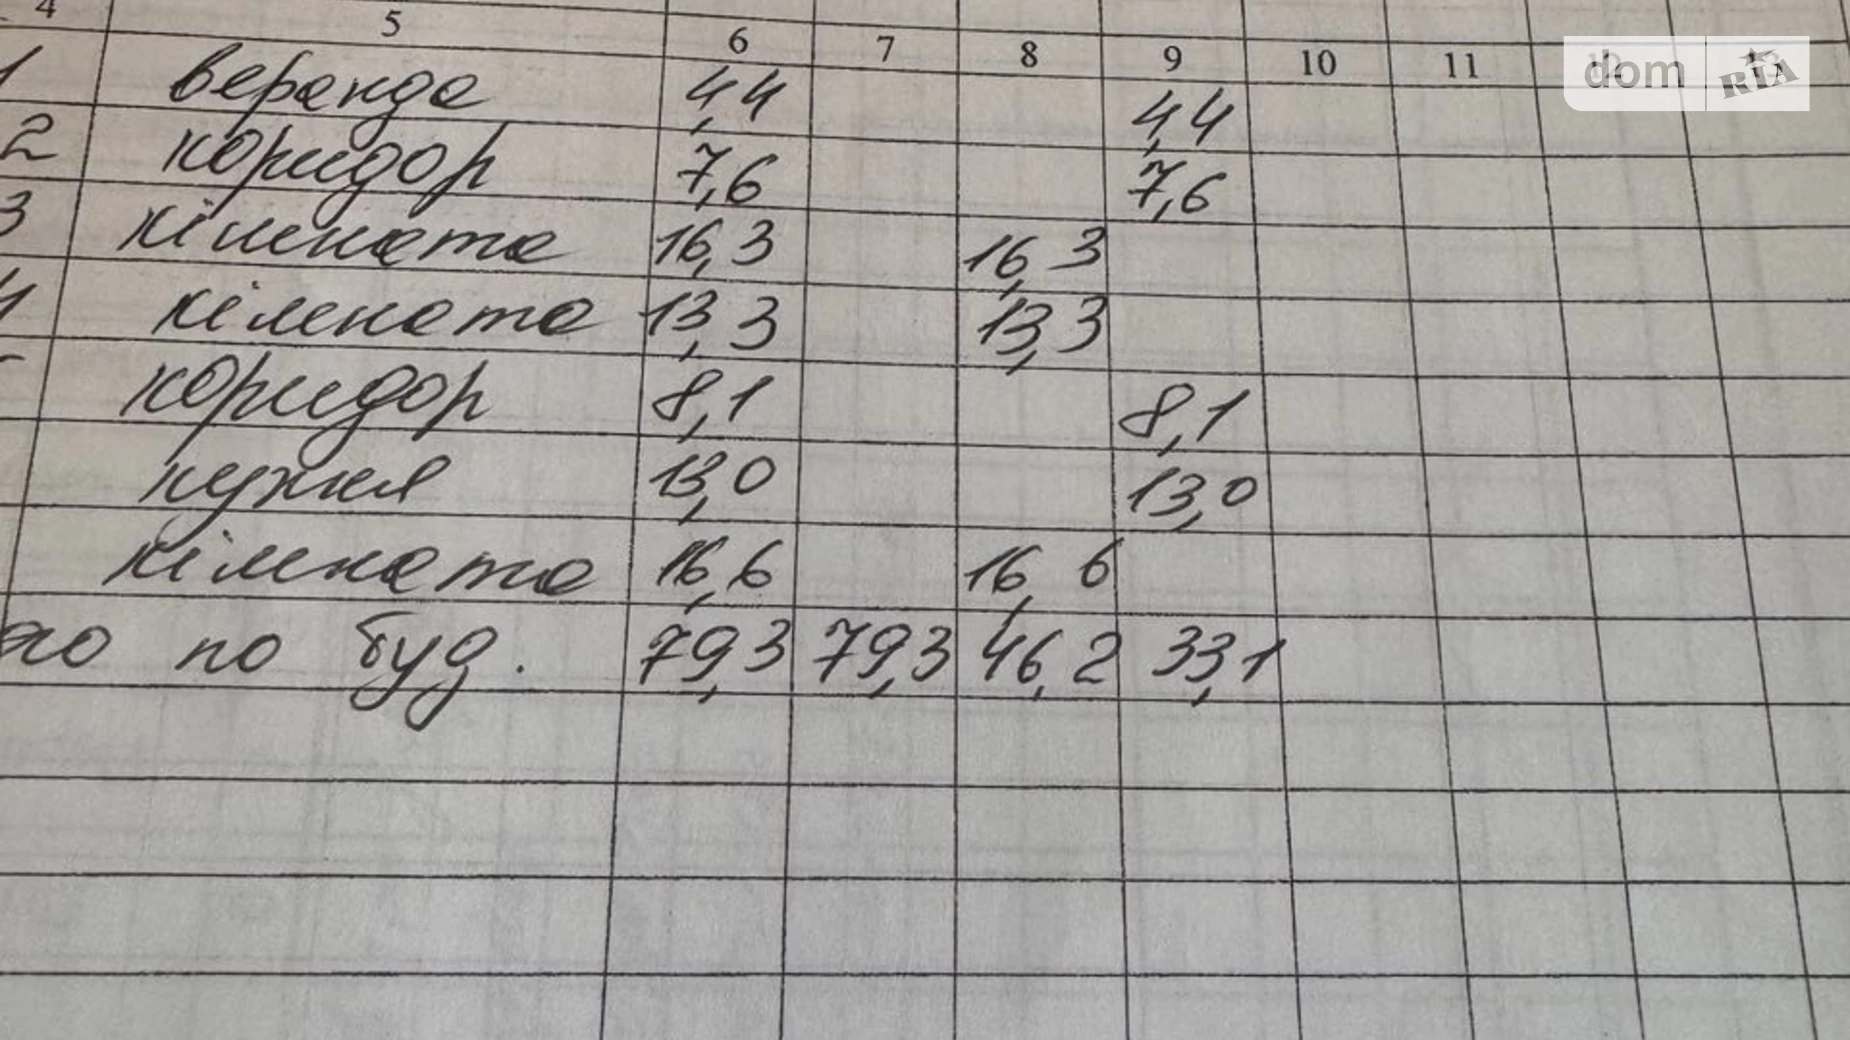 4 5 6 7 8 9 10 11
1 веранда 4,4 4,4
2 коридор 7,6 7,6
3 кімната 16,3 16,3
4 кімната 13,3 13,3
коридор 8,1 8,1
кухня 13,0 13,0
кімната 16,6 16,6
по буд. 79,3 79,3 46,2 33,1
dom RIA